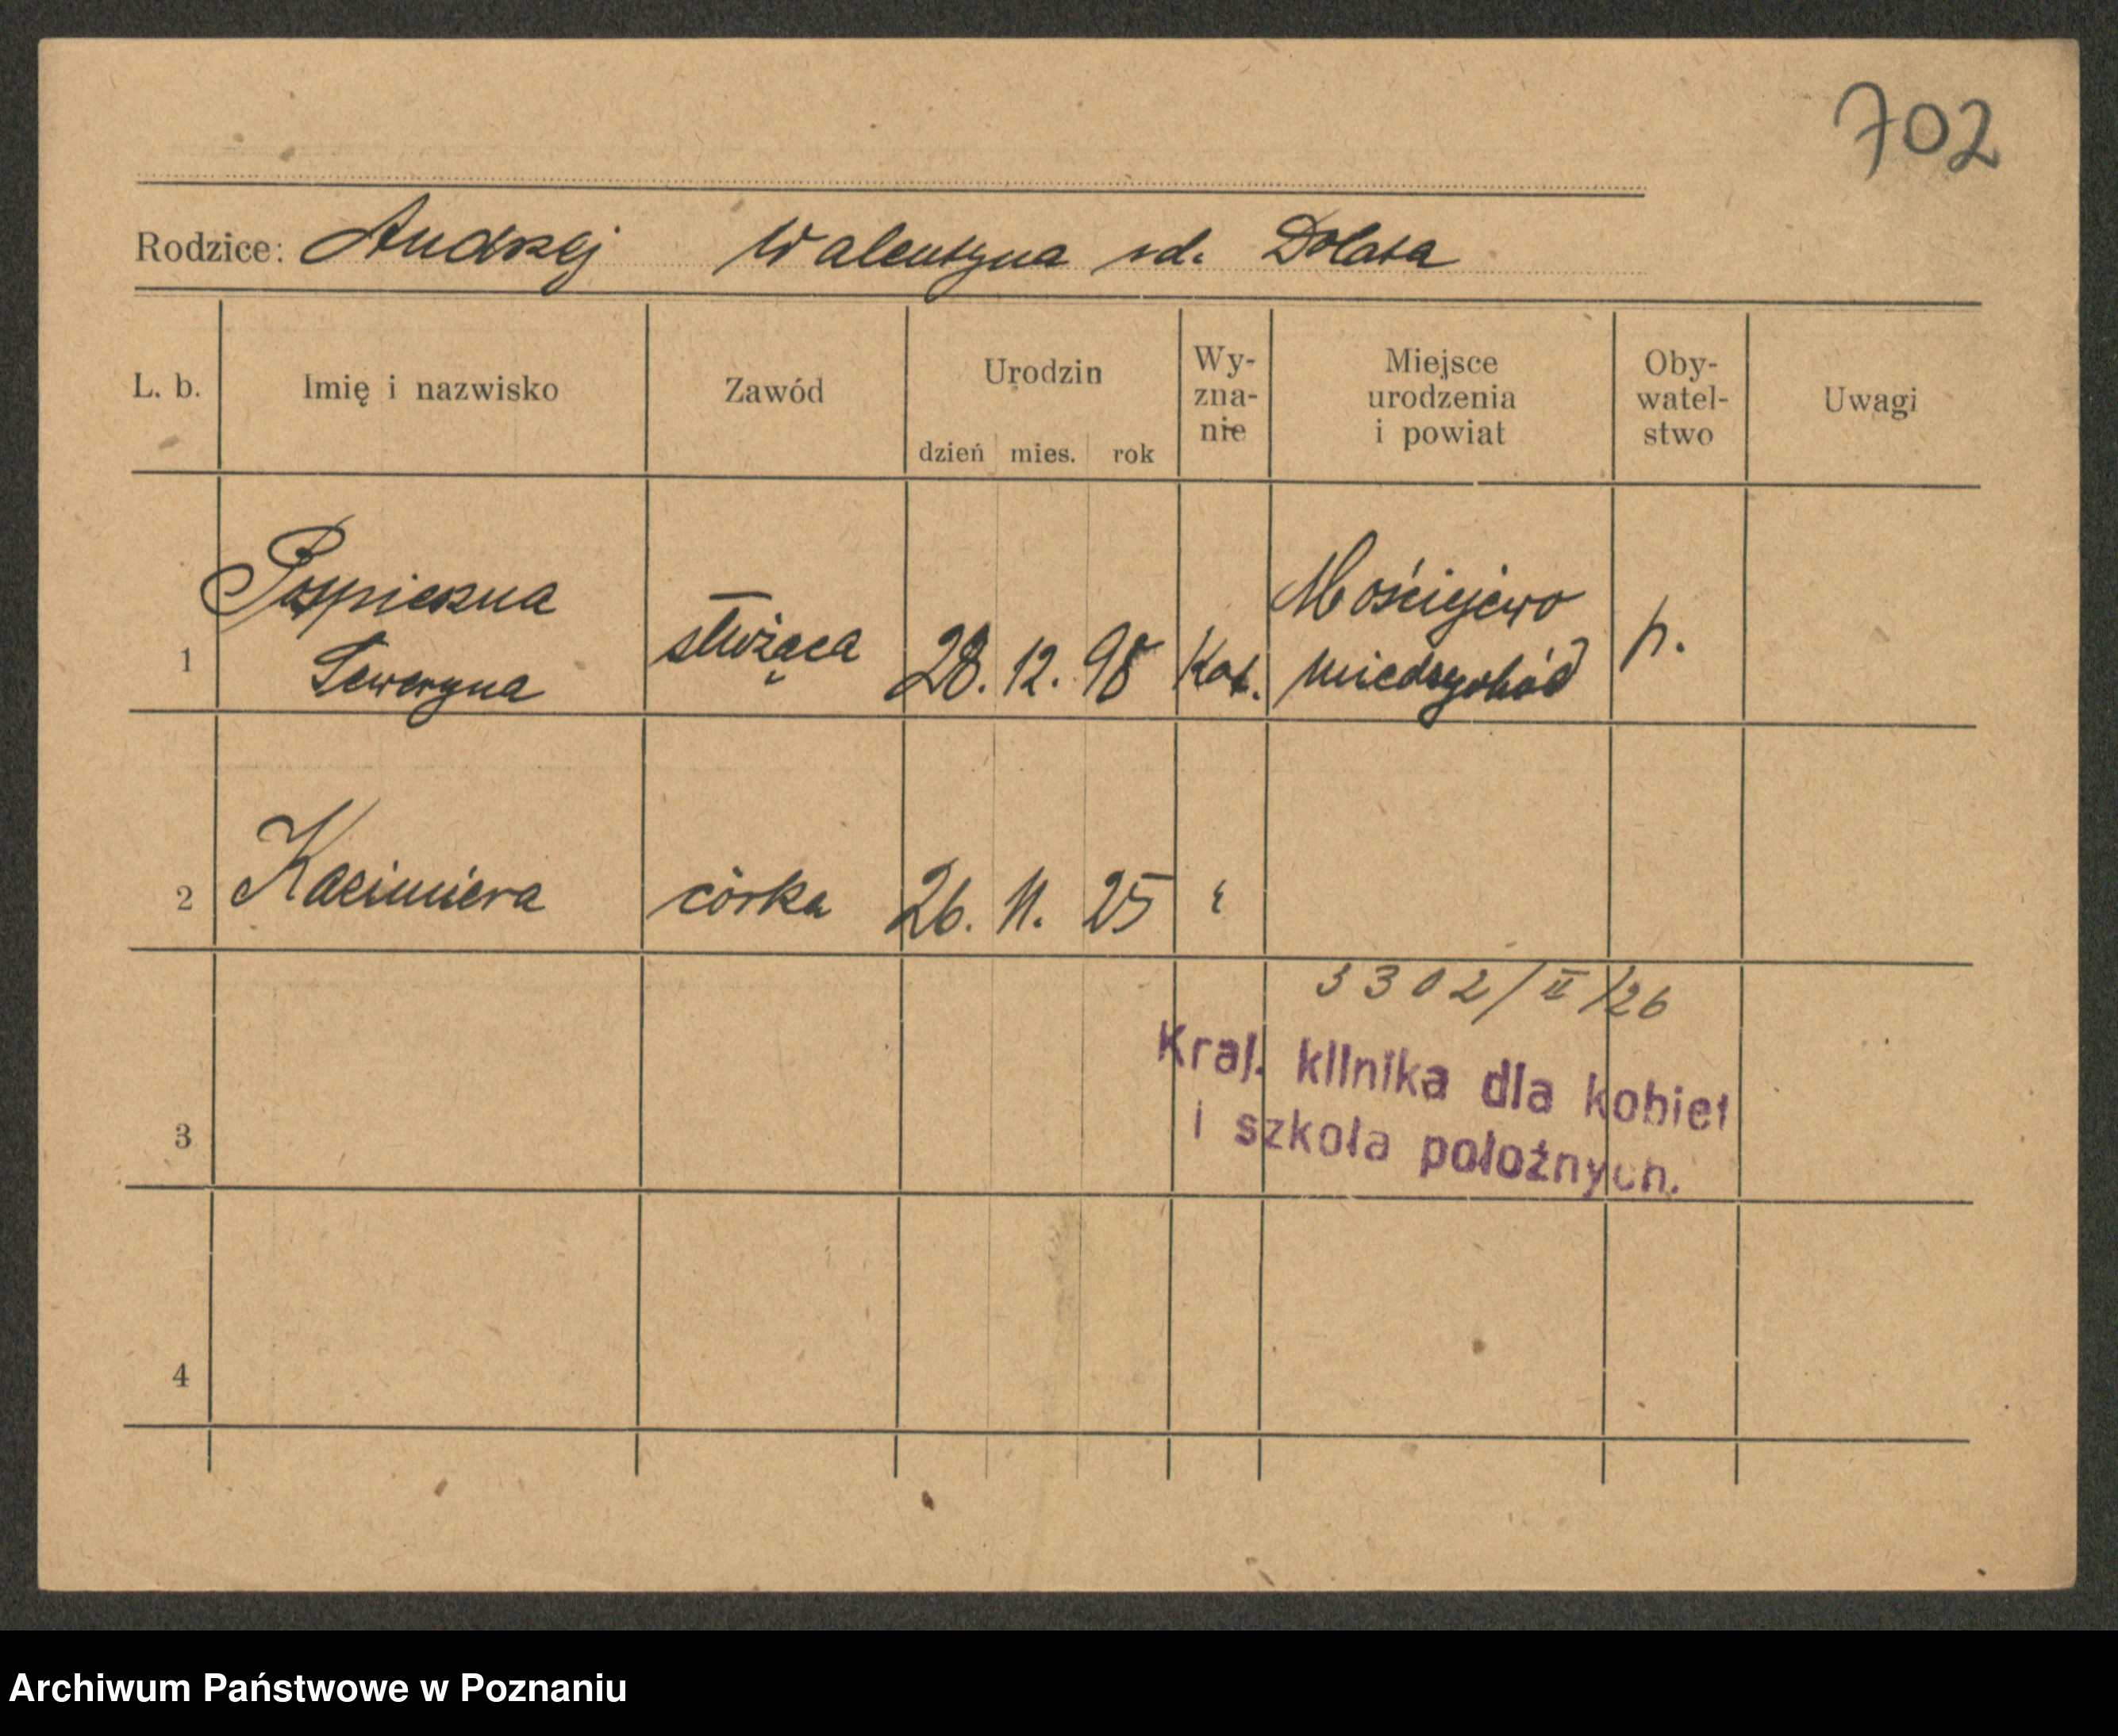 702
Rodzice: Andrzej Walentyna zd. Dolata
L. b. Imię i nazwisko Zawód Urodzin Wy- Miejsce Oby- Uwagi
zna- urodzenia watel-
nie i powiat stwo
dzień mies. rok
Pospieszna Mościejewo
1 Seweryna służąca 28. 12. 98 Kat. Miedzychód p.
2 Kazimiera córka 26. 11. 25 "
3302/II/26
Kraj. klinika dla kobiet
i szkoła położnych.
3
4
Archiwum Państwowe w Poznaniu